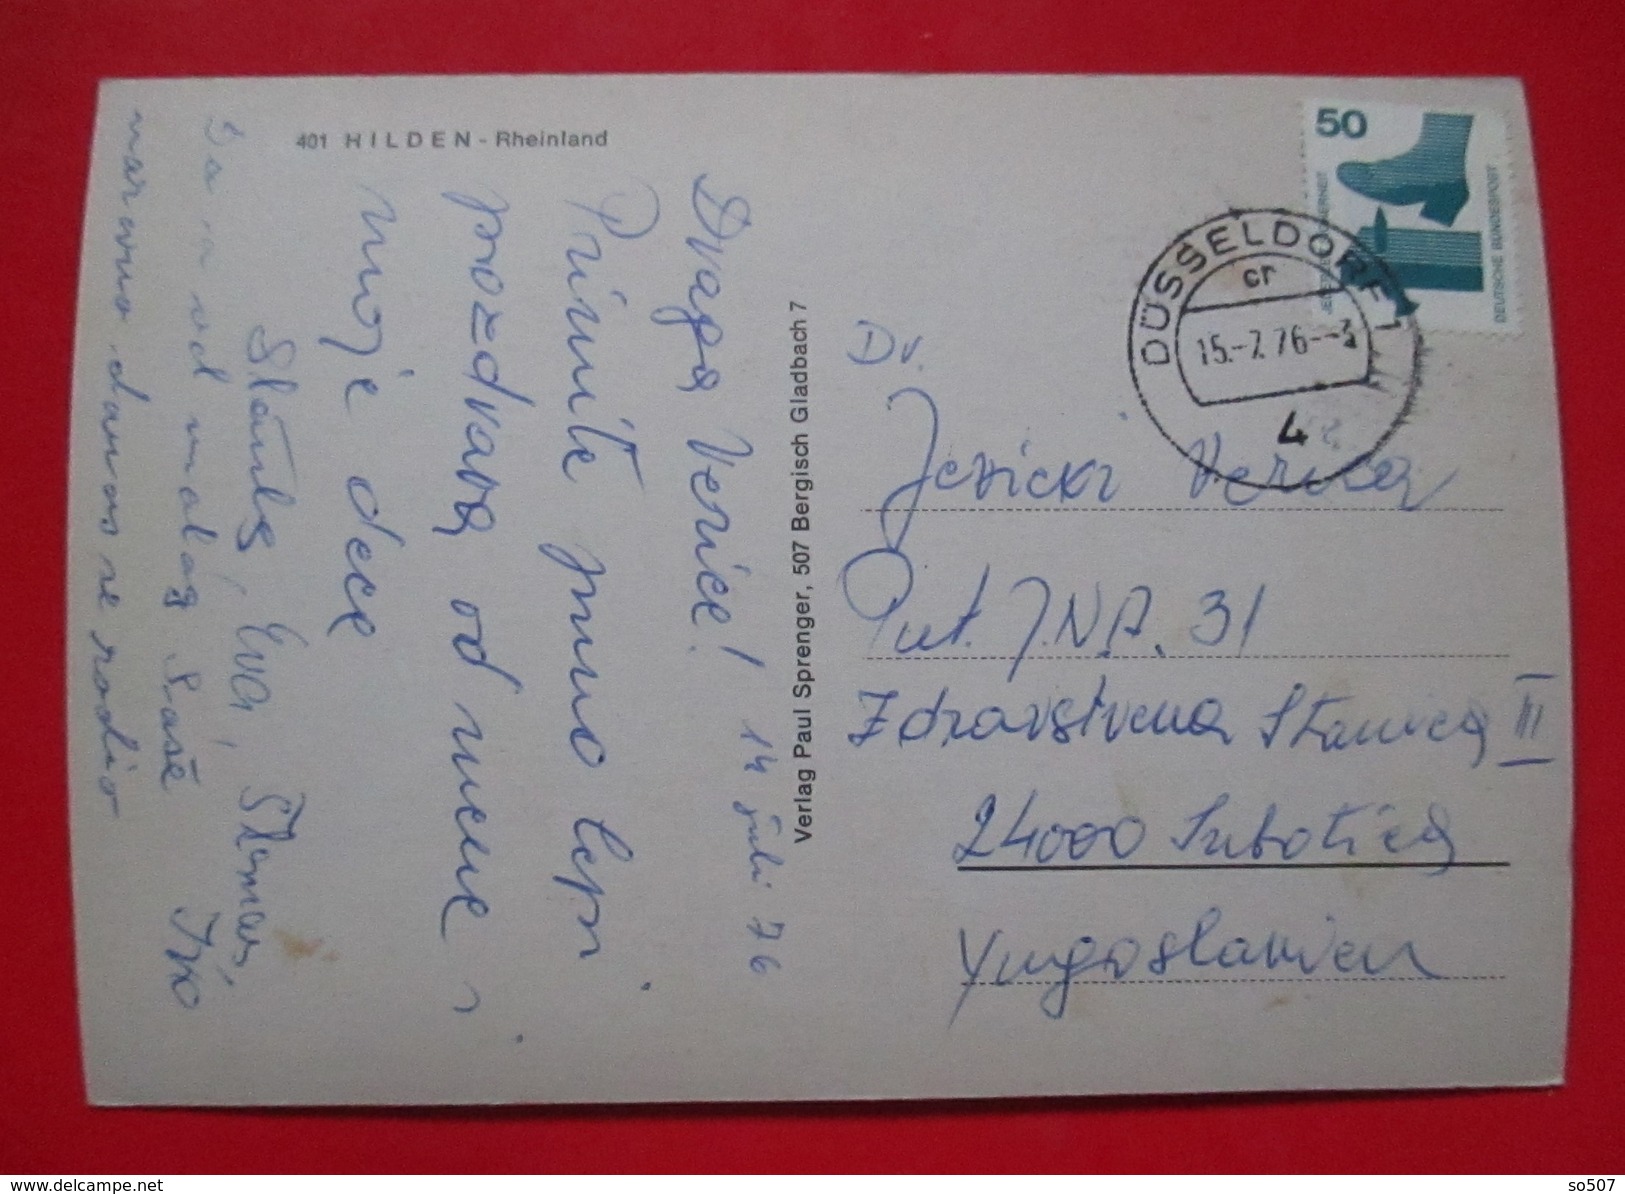 401 HILDEN - Rheinland
14 juli 76
Draga Verice!
Primite puno lepi
pozdrava od mene i
moje dece
Slavila, Eva, Stoman,
Da i od malog Saše
naravno danas se rodio
Verlag Paul Sprenger, 507 Bergisch Gladbach 7
50
DEUTSCHE BUNDESPOST
DÜSSELDORF 1
cr
15.-7.76--
4
Dr.
Jesicki Verica
Put. J.N.A. 31
Zdravstvena Stanica III
24000 Subotica
Yugoslavien
www.delcampe.net
so507